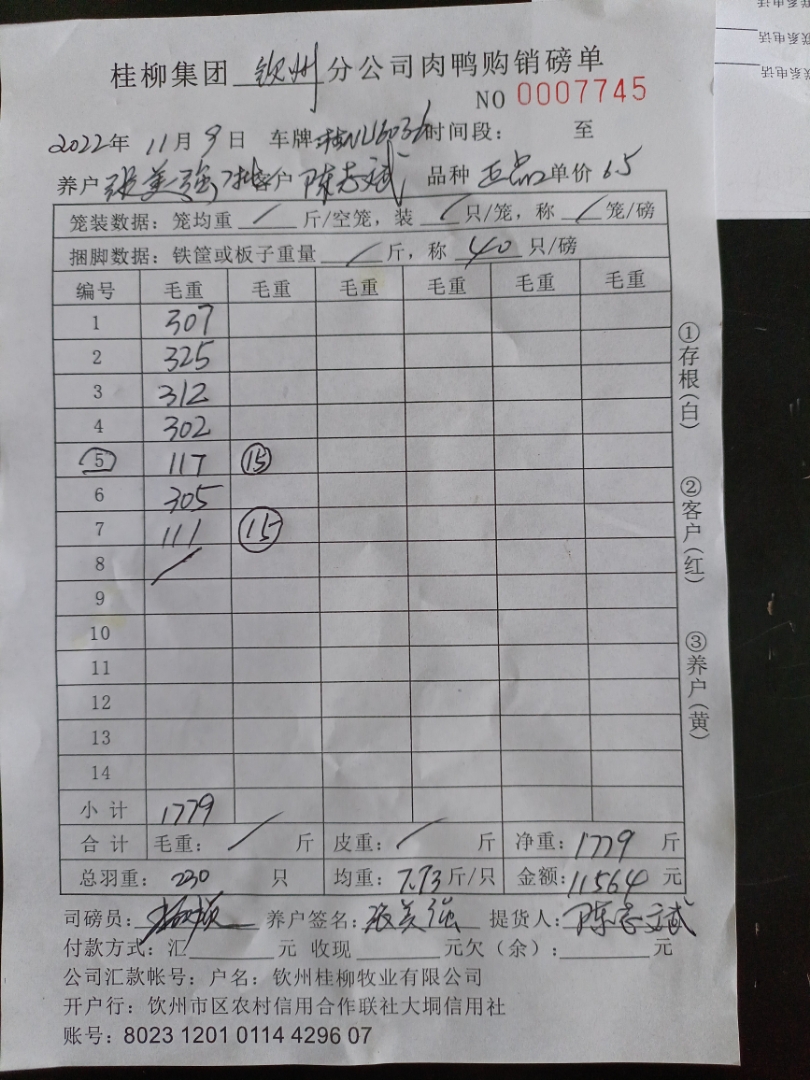 桂柳集团 钦州 分公司肉鸭购销磅单
NO 0007745
2022年 11月 9日 车牌 时间段: 至
养户 张美强 客户 陈志斌 品种 正品 单价 6.5
笼装数据: 笼均重 / 斤/空笼, 装 / 只/笼, 称 / 笼/磅
捆脚数据: 铁筐或板子重量 / 斤, 称 40 只/磅
编号 毛重 毛重 毛重 毛重 毛重 毛重
1 307
2 325
3 312
4 302
5 117 15
6 305
7 111 15
8 /
9
10
11
12
13
14
小计 1779
合计 毛重: / 斤 皮重: / 斤 净重: 1779 斤
总羽重: 230 只 均重: 7.73 斤/只 金额: 11564 元
司磅员: 养户签名: 张美强 提货人: 陈志斌
付款方式: 汇 元 收现 元欠(余): 元
公司汇款帐号: 户名: 钦州桂柳牧业有限公司
开户行: 钦州市区农村信用合作联社大垌信用社
账号: 8023 1201 0114 4296 07
①存根(白)
②客户(红)
③养户(黄)
联系电话
联系电话
联系电话